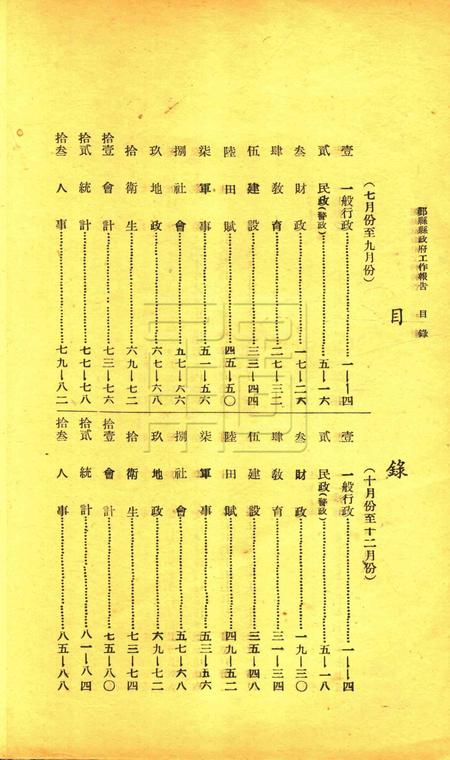 鄞縣縣政府工作報告 目錄
目錄
(七月份至九月份)
壹 一般行政 一—四
貳 民政(警政) 五—一六
叁 財政 一七—二六
肆 教育 二七—三二
伍 建設 三三—四四
陸 田賦 四五—五〇
柒 軍事 五一—五六
捌 社會 五七—六六
玖 地政 六七—六八
拾 衛生 六九—七二
拾壹 會計 七三—七六
拾貳 統計 七七—七八
拾叁 人事 七九—八二
(十月份至十二月份)
壹 一般行政 一—四
貳 民政(警政) 五—一八
叁 財政 一九—三〇
肆 教育 三一—三四
伍 建設 三五—四八
陸 田賦 四九—五二
柒 軍事 五三—五六
捌 社會 五七—六八
玖 地政 六九—七二
拾 衛生 七三—七四
拾壹 會計 七五—八〇
拾貳 統計 八一—八四
拾叁 人事 八五—八八